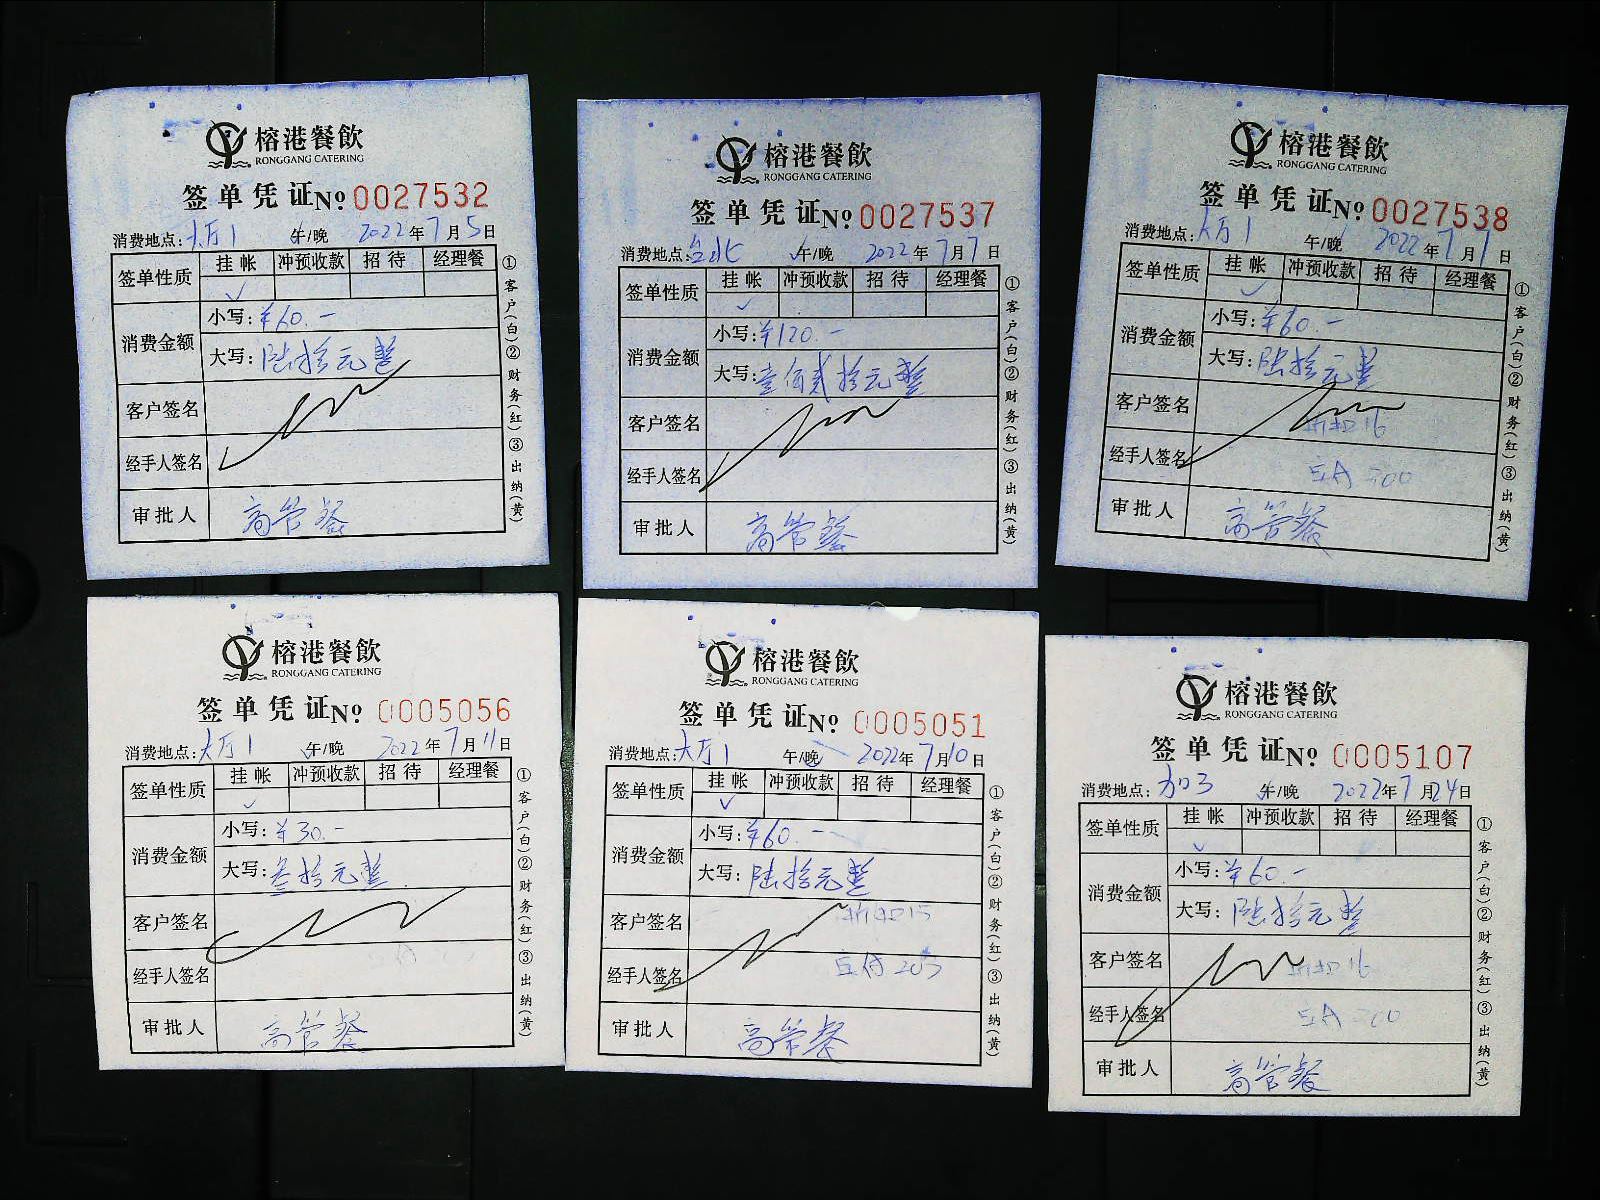 榕港餐飲
RONGGANG CATERING
签单凭证 No 0027532
消费地点: 大厅1 午/晚 2022年7月5日
签单性质 挂帐 冲预收款 招待 经理餐
✓
消费金额 小写: ¥60.-
大写: 陆拾元整
客户签名
经手人签名
审批人 高管餐
①客户(白)②财务(红)③出纳(黄)
榕港餐飲
RONGGANG CATERING
签单凭证 No 0027537
消费地点: 台北 午/晚 2022年7月7日
签单性质 挂帐 冲预收款 招待 经理餐
✓
消费金额 小写: ¥120.-
大写: 壹佰贰拾元整
客户签名
经手人签名
审批人 高管餐
①客户(白)②财务(红)③出纳(黄)
榕港餐飲
RONGGANG CATERING
签单凭证 No 0027538
消费地点: 大厅1 午/晚 2022年7月 日
签单性质 挂帐 冲预收款 招待 经理餐
✓
消费金额 小写: ¥60.-
大写: 陆拾元整
客户签名 16
经手人签名
审批人 高管餐
①客户(白)②财务(红)③出纳(黄)
榕港餐飲
RONGGANG CATERING
签单凭证 No 0005056
消费地点: 大厅1 午/晚 2022年7月11日
签单性质 挂帐 冲预收款 招待 经理餐
✓
消费金额 小写: ¥30.-
大写: 叁拾元整
客户签名
经手人签名
审批人 高管餐
①客户(白)②财务(红)③出纳(黄)
榕港餐飲
RONGGANG CATERING
签单凭证 No 0005051
消费地点: 大厅1 午/晚 2022年7月10日
签单性质 挂帐 冲预收款 招待 经理餐
✓
消费金额 小写: ¥60.-
大写: 陆拾元整
客户签名 15
经手人签名
审批人 高管餐
①客户(白)②财务(红)③出纳(黄)
榕港餐飲
RONGGANG CATERING
签单凭证 No 0005107
消费地点: 加3 午/晚 2022年7月24日
签单性质 挂帐 冲预收款 招待 经理餐
✓
消费金额 小写: ¥60.-
大写: 陆拾元整
客户签名 16
经手人签名
审批人 高管餐
①客户(白)②财务(红)③出纳(黄)